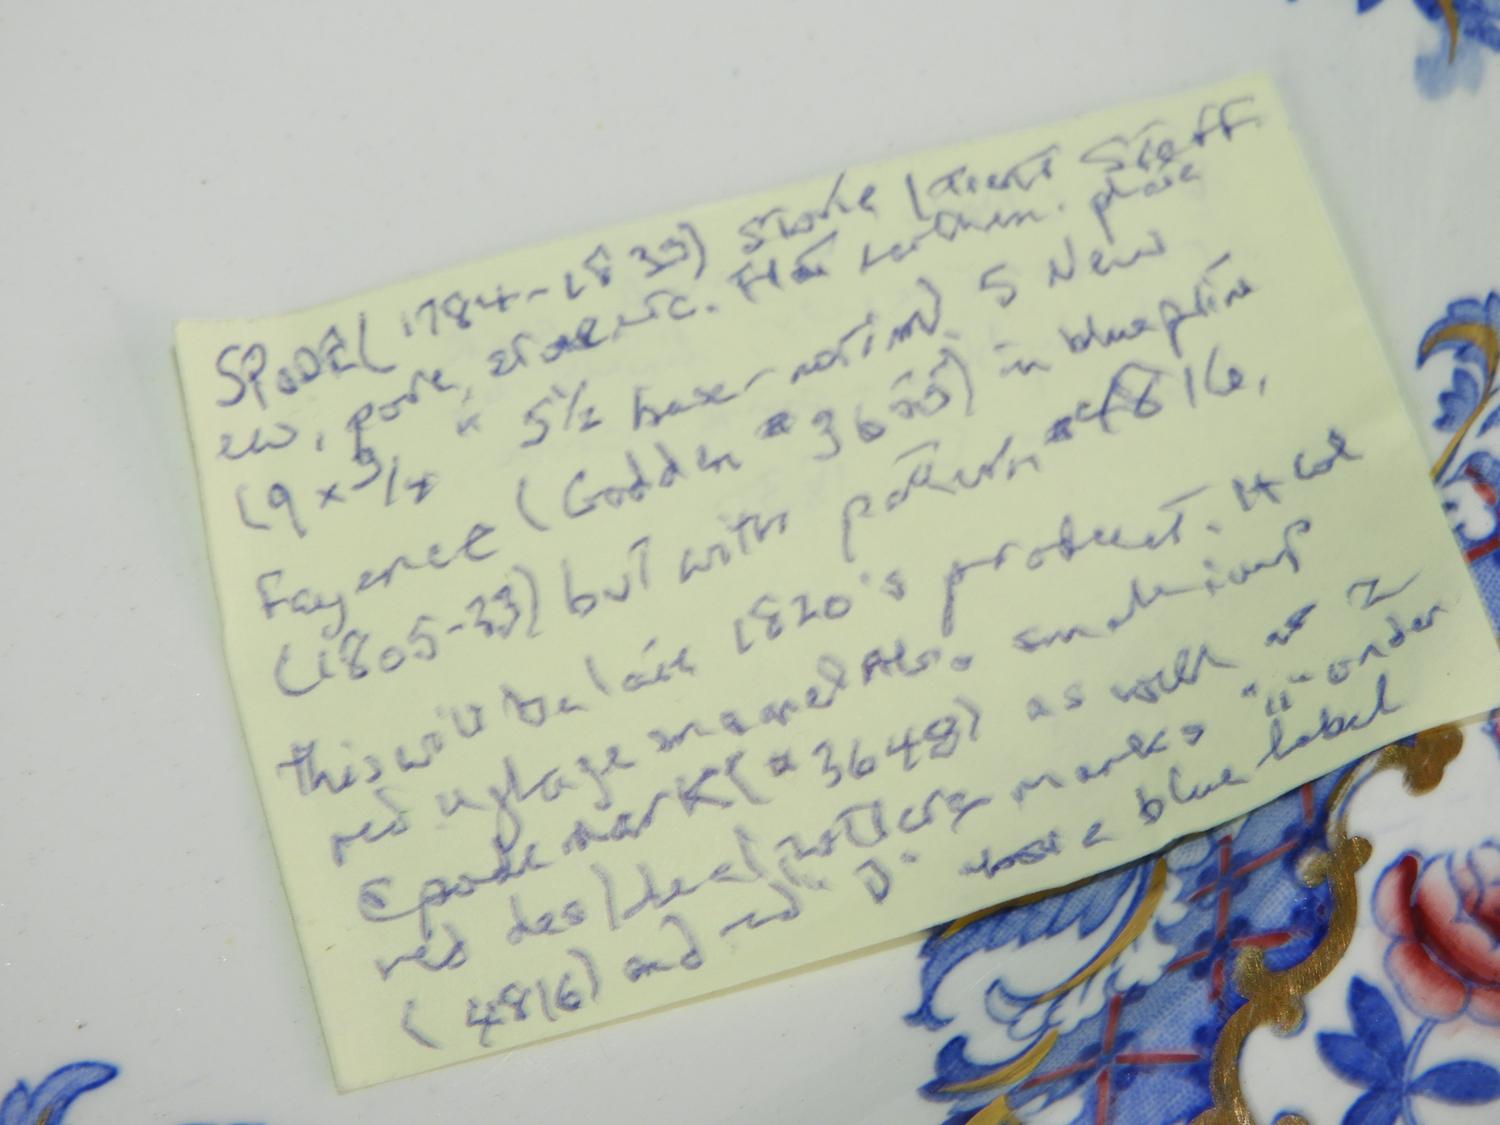 SPODE (1784-1833) Stoke / Trent Staff
ew, porc, stone, etc. Flat earthen. plate
(9 x 3/4 x 5 1/2 base - not ind) S New
Fayence (Godden # 3655) in blueprint
(1805-33) but with pattern #4816,
this will be late 1820's product. It
red uglaze enamel Also
Spode mark (#3648) as well as 2
red des/decal marks "11" under
(4816) and red "D" blue label